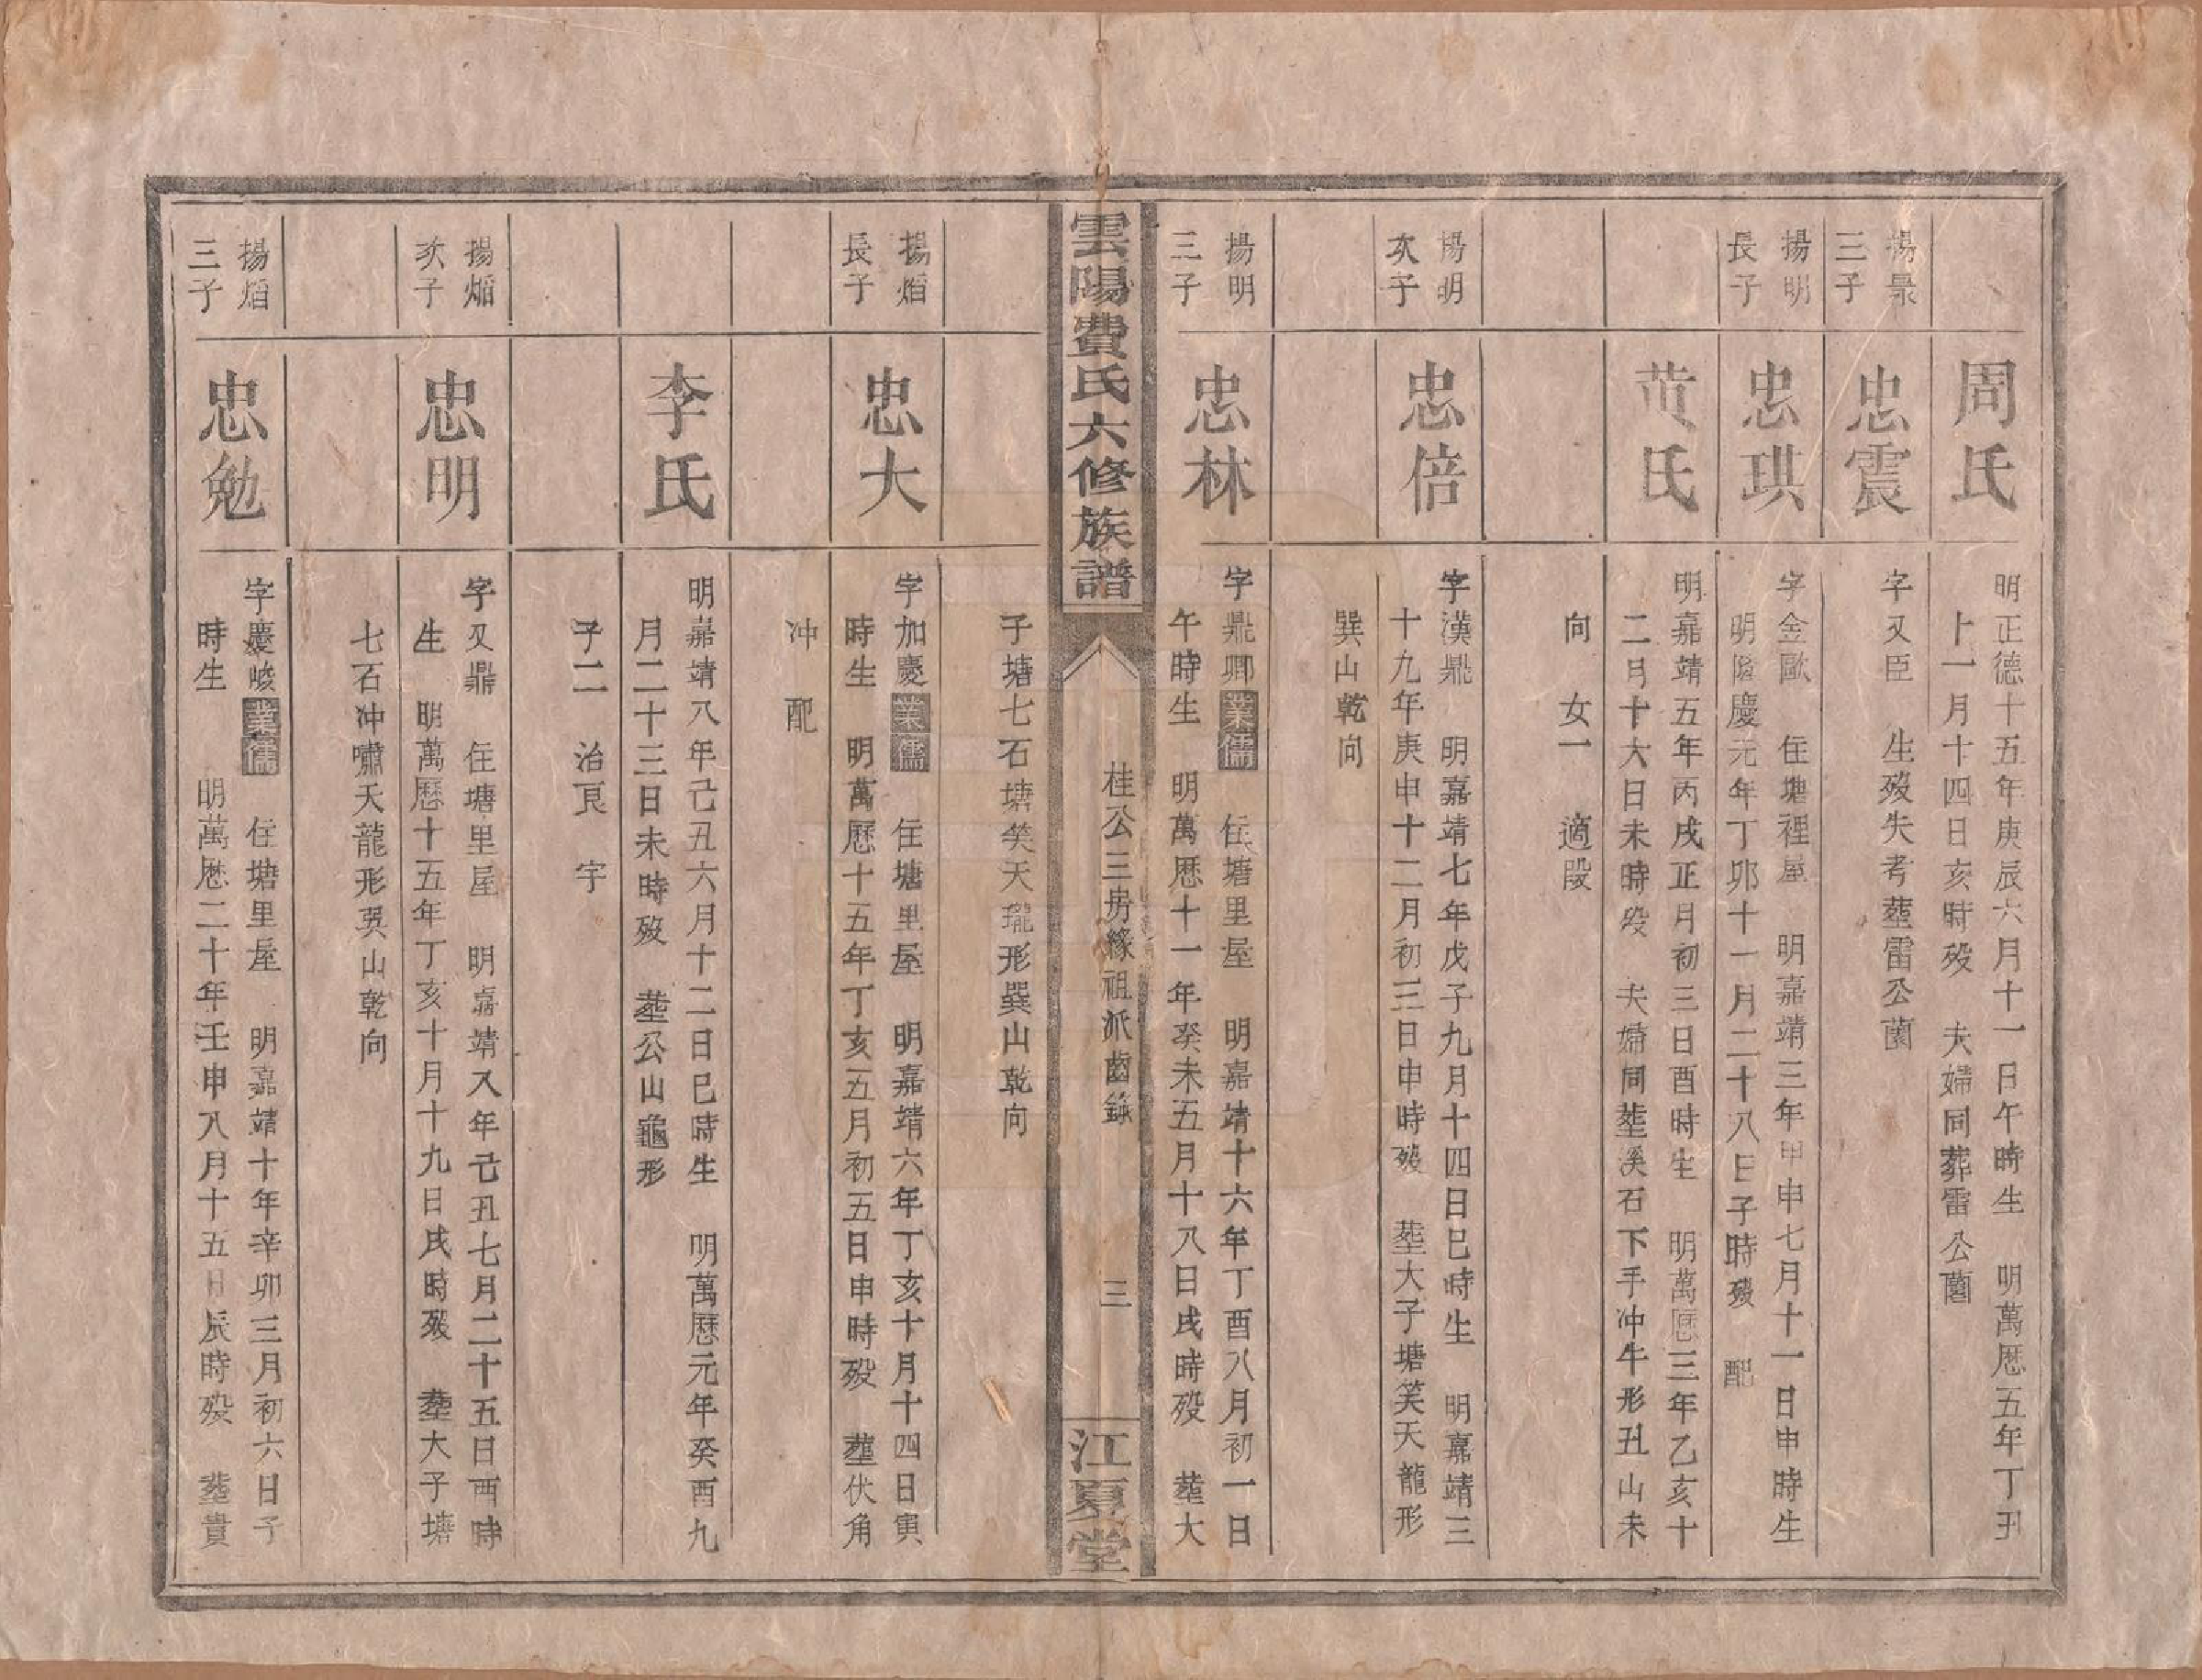 周氏
明正德十五年庚辰六月十一日午時生　明萬厯五年丁丑
十一月十四日亥時歿　夫婦同葬雷公薗
揚景
三子
忠震
字又臣　生歿失考塟雷公薗
揚明
長子
忠琪
字金歐　住塘裡屋　明嘉靖三年甲申七月十一日申時生
明隆慶元年丁卯十一月二十八日子時歿　配
黄氏
明嘉靖五年丙戌正月初三日酉時生　明萬厯三年乙亥十
二月十六日未時歿　夫婦同塟溪石下手冲牛形丑山未
向　女一　適段
揚明
次子
忠倍
字漢鼎　明嘉靖七年戊子九月十四日巳時生　明嘉靖三
十九年庚申十二月初三日申時歿　塟大子塘笑天龍形
巽山乾向
揚明
三子
忠林
字鼎卿業儒　住塘里屋　明嘉靖十六年丁酉八月初一日
午時生　明萬厯十一年癸未五月十八日戌時歿　塟大
子塘七石塘笑天瓏形巽山乾向
雲陽費氏六修族譜
桂公三房緣祖派齒錄
三
江夏堂
揚熖
長子
忠大
字加慶業儒　住塘里屋　明嘉靖六年丁亥十月十四日寅
時生　明萬厯十五年丁亥五月初五日申時歿　塟伏角
冲　配
李氏
明嘉靖八年己丑六月十二日巳時生　明萬厯元年癸酉九
月二十三日未時歿　塟公山龜形
子二　治良　宇
揚熖
次子
忠明
字又鼎　住塘里屋　明嘉靖八年己丑七月二十五日酉時
生　明萬厯十五年丁亥十月十九日戌時歿　塟大子塘
七石冲嘯天龍形巽山乾向
揚熖
三子
忠勉
字慶峻業儒　住塘里屋　明嘉靖十年辛卯三月初六日子
時生　明萬厯二十年壬申八月十五日辰時歿　塟貴